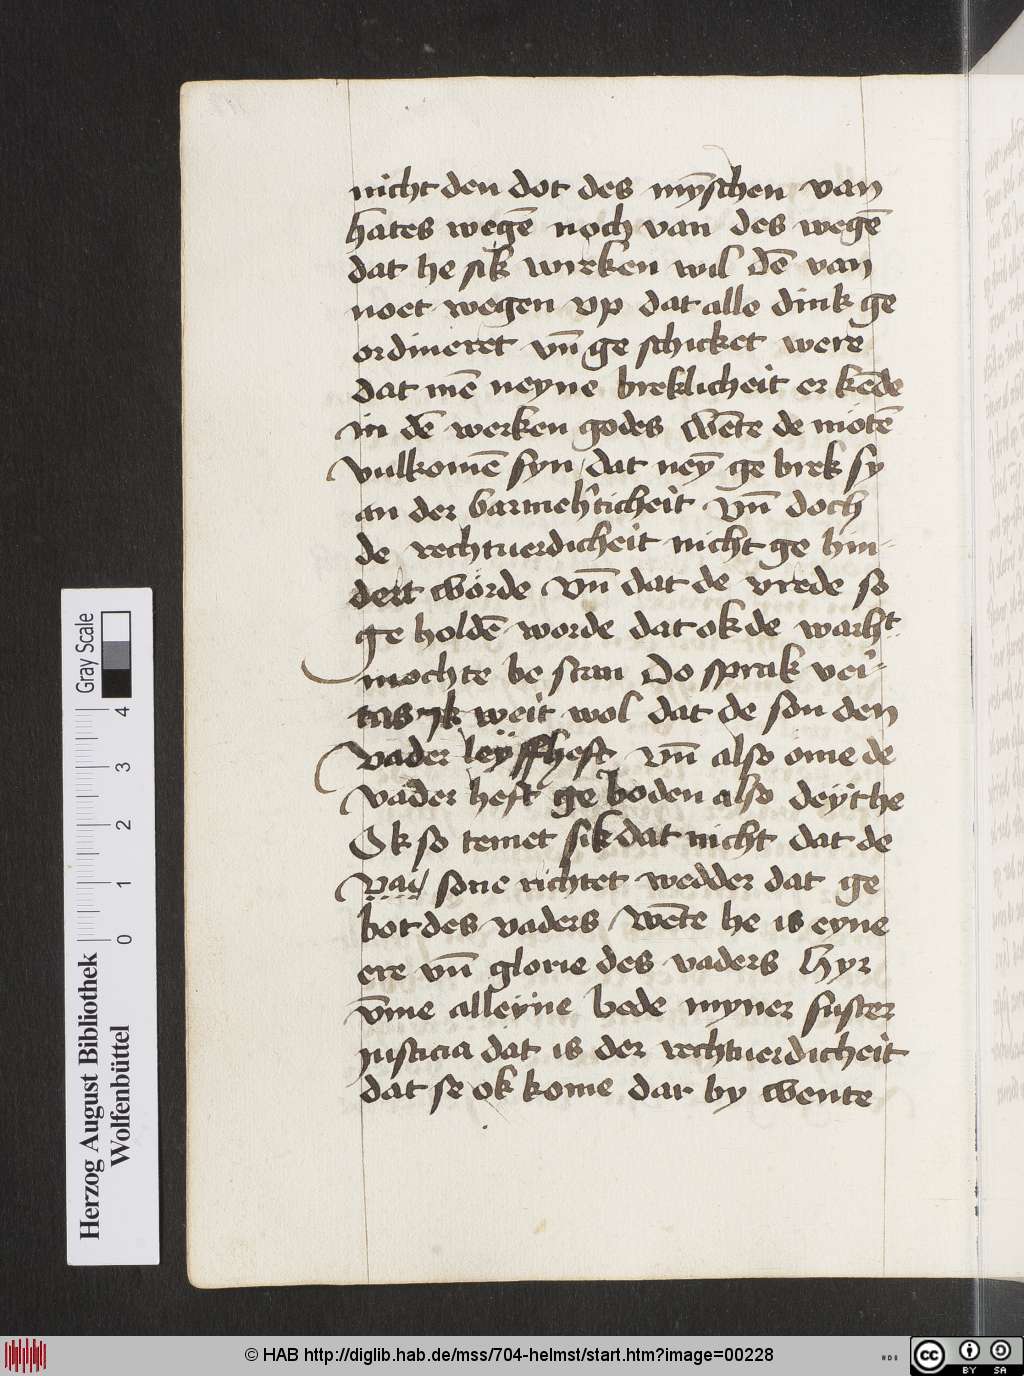 nicht den dot des mȳschen van
hates wegē noch van des wegē
dat he sik wreken wil dē van
noet wegen vp dat alle dink ge
ordineret vn̄ ge schicket were
dat mē neyne breklicheit er kēde
in dē werken godes wēte de moͤtē
vulkomē syn dat neȳ ge brek sy
an der barmeh'ticheit vn̄ doch
de rechtuerdicheit nicht ge hin-
dert woͤrde vn̄ dat de vrede so
ge holdē worde dat ok de warht
mochte be stan Do sprak vei-
tas Jk weit wol dat de son den
vader leÿff heft vn̄ also ome de
vader heft ge boden also deÿt he
Ok so temet sik dat nicht dat de
vad sone richtet wedder dat ge
bot des vaders wēte he is eyne
ere vn̄ glorie des vaders Hyr
v̄me alleyne bede myner suster
justicia dat is der rechtuerdicheit
dat se ok kome dar by wente
Gray Scale
4
3
2
1
0
Herzog August Bibliothek
Wolfenbüttel
© HAB http://diglib.hab.de/mss/704-helmst/start.htm?image=00228
cc BY SA